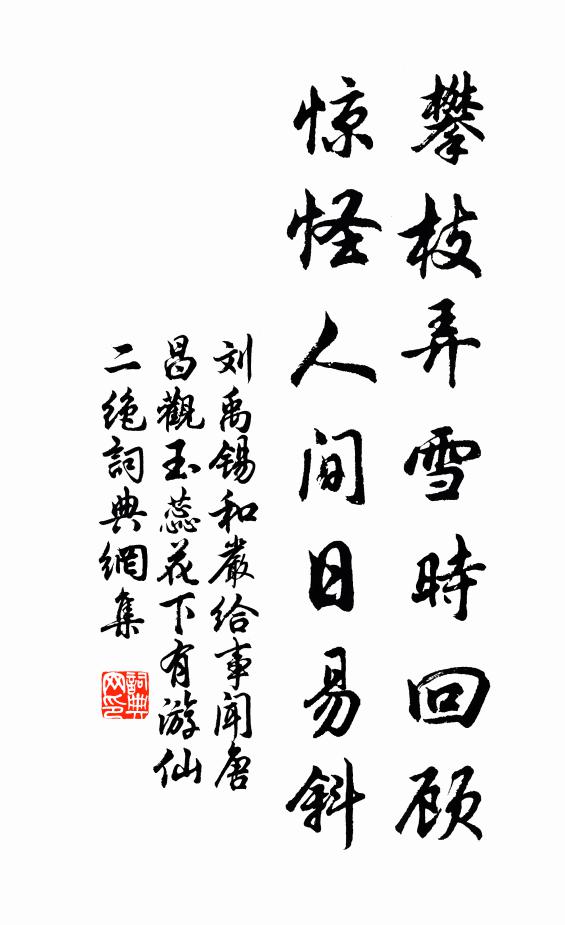 攀枝弄雪時回顾
惊怪人间日易斜
刘禹锡和嚴给事闻唐
昌觀玉蕊花下有游仙
二绝詞典網集
詞典网印